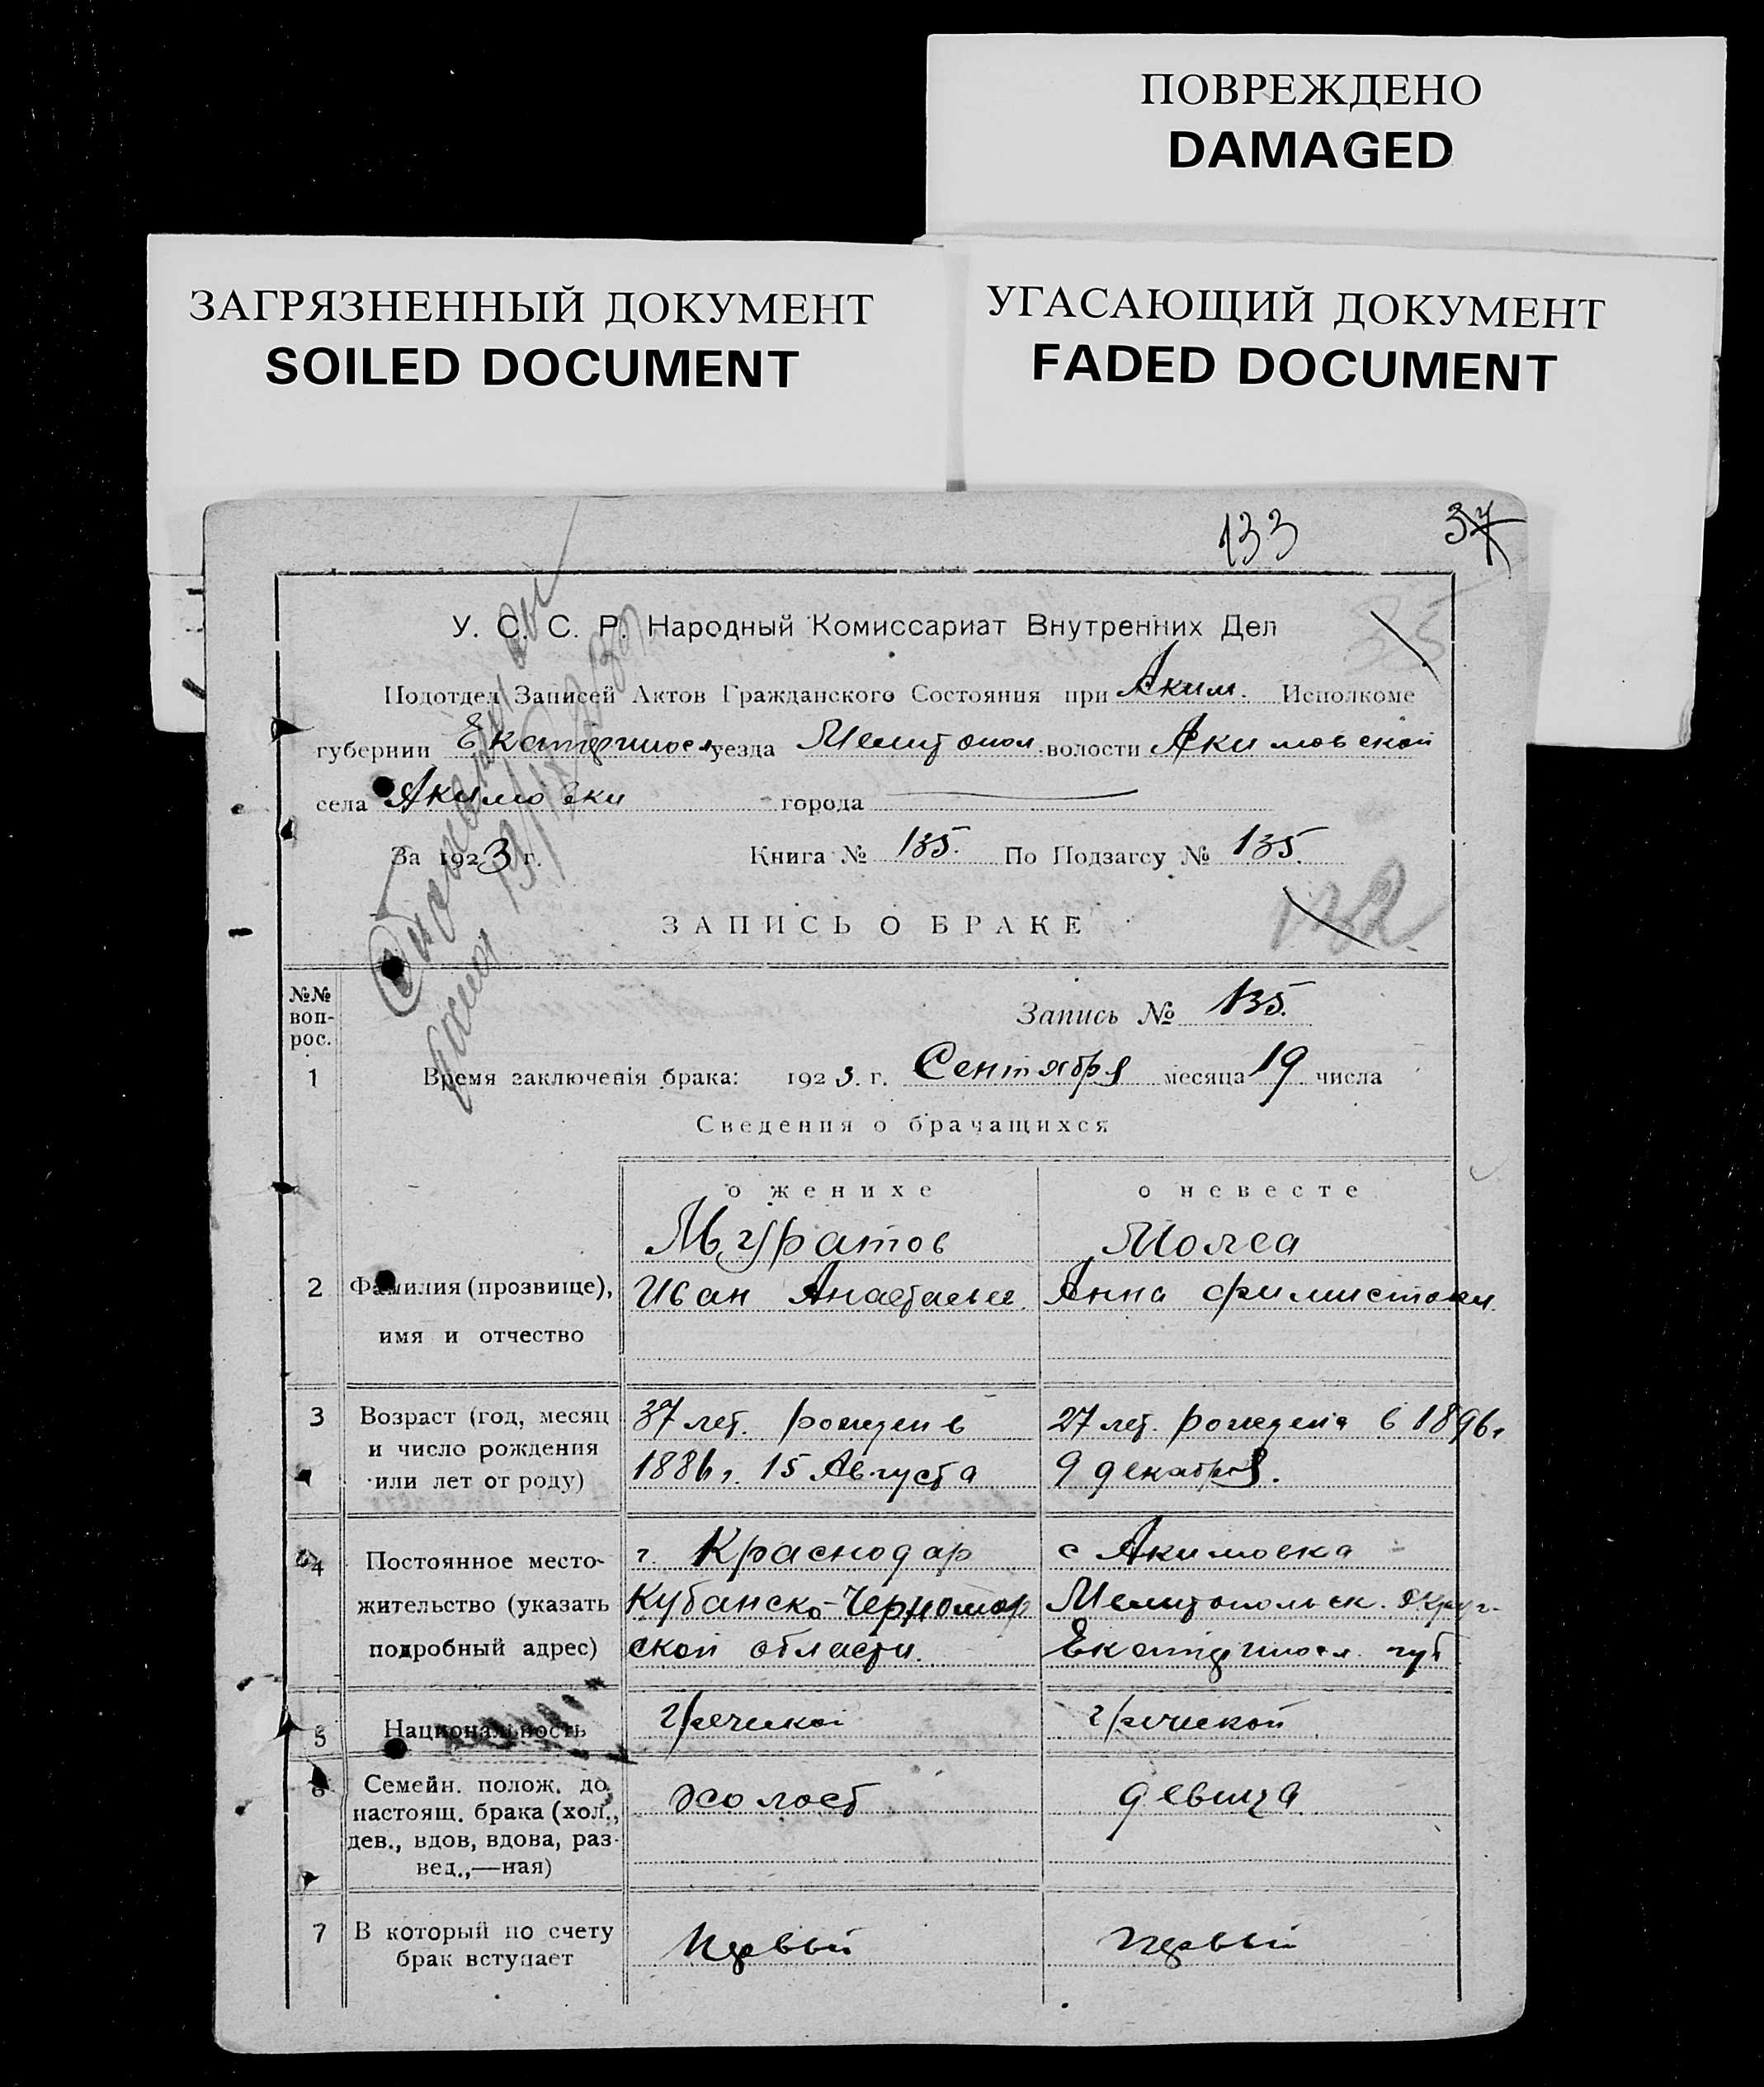 ПОВРЕЖДЕНО
DAMAGED
ЗАГРЯЗНЕННЫЙ ДОКУМЕНТ
SOILED DOCUMENT
УГАСАЮЩИЙ ДОКУМЕНТ
FADED DOCUMENT
133 37
35
У. С. С. Р. Народный Комиссариат Внутренних Дел
Подотдел Записей Актов Гражданского Состояния при Аким. Исполкоме
губернии Екатеринослуезда Мелитопол. волости Акимовской
села Акимовки города
За 1923 г. Книга № 135. По Подзагсу № 135.
132
ЗАПИСЬ О БРАКЕ
№№ воп- рос.
Запись № 135.
1 Время заключенія брака: 1923. г. Сентября месяца 19 числа
Сведения о брачащихся
о женихе о невесте
Муратов
2 Фамилия (прозвище), имя и отчество
Иван Анна
3 Возраст (год, месяц и число рождения или лет от роду)
37 лет. рожден в 27 лет. рождена в 1896г
1886г. 15 Августа 9 декабря.
4 Постоянное место-жительство (указать подробный адрес)
г. Краснодар с Акимовка
Кубанско-Черномор Мелитопольск. Округ.
ской области. Екатериносл. губ
5 Национальность греческой греческой
6 Семейн. полож. до настоящ. брака (хол., дев., вдов, вдова, раз-вед.,—ная)
холост девица
7 В который по счету брак вступает
первый первый